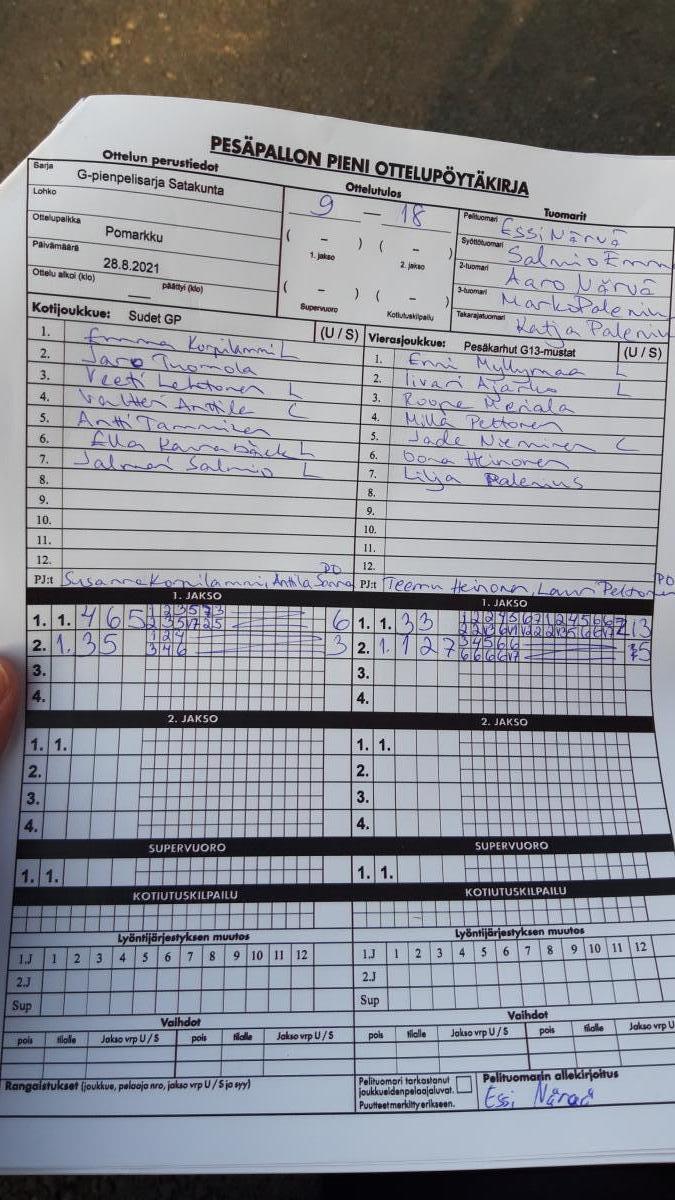 PESÄPALLON PIENI OTTELUPÖYTÄKIRJA
Ottelun perustiedot
Sarja
G-pienpelisarja Satakunta
Lohko
Ottelupaikka
Pomarkku
Päivämäärä
28.8.2021
Ottelu alkoi (klo) päättyi (klo)
Ottelutulos
9 — 18
( – ) ( – )
1. jakso 2. jakso
( – ) ( – )
Supervuoro Kotiutuskilpailu
Tuomarit
Pelituomari Essi Närvä
Syöttötuomari Salmio Emm
2-tuomari Aaro Närvä
3-tuomari Marko Paleniu
Takarajatuomari Katja Palenius
Kotijoukkue: Sudet GP (U / S)
1. Emma Korpilammi L
2. Jaro Tuomola
3. Veeti Lehtonen L
4. Valtteri Anttila C
5. Antti Tamminen
6. Ella L
7. Jalmari Salmio L
8.
9.
10.
11.
12.
PJ:t Susanna Korpilammi, Anttila Sanna PO
Vierasjoukkue: Pesäkarhut G13-mustat (U / S)
1. Enni Myllymaa L
2. Iivari L
3. Roope Meriala
4. Milla Peltonen
5. Jade Nieminen C
6. Oona Heinonen
7. Lilja Palenius
8.
9.
10.
11.
12.
PJ:t Teemu Heinonen, Lauri Peltonen PO
1. JAKSO
1. 1. 4 6 5 6
2. 1. 3 5 3
3.
4.
1. JAKSO
1. 1. 3 3 13
2. 1. 1 2 7 5
3.
4.
2. JAKSO
1. 1.
2.
3.
4.
2. JAKSO
1. 1.
2.
3.
4.
SUPERVUORO
1. 1.
SUPERVUORO
1. 1.
KOTIUTUSKILPAILU
KOTIUTUSKILPAILU
Lyöntijärjestyksen muutos
1.J 1 2 3 4 5 6 7 8 9 10 11 12
2.J
Sup
Lyöntijärjestyksen muutos
1.J 1 2 3 4 5 6 7 8 9 10 11 12
2.J
Sup
Vaihdot
pois tilalle Jakso vrp U / S pois tilalle Jakso vrp U / S
Vaihdot
pois tilalle Jakso vrp U / S pois tilalle Jakso vrp U
Rangaistukset (joukkue, pelaaja nro, jakso vrp U / S ja syy)
Pelituomari tarkastanut
joukkueidenpelaajaluvat.
Puutteetmerkittyerikseen.
Pelituomarin allekirjoitus
Essi Närvä